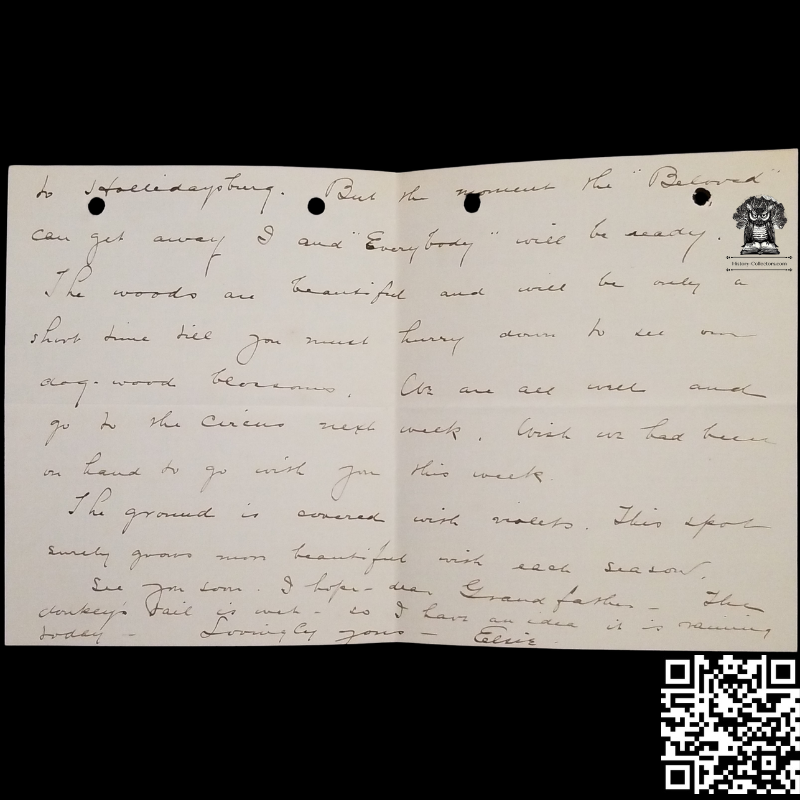 to Hollidaysburg. But the moment the "Beloved"
can get away I and "Everybody" will be ready.
The woods are beautiful and will be only a
short time till you must hurry down to see our
dog-wood blossoms. We are all well and
go to the circus next week. Wish we had been
on hand to go with you this week.
The ground is covered with violets. This spot
surely grows more beautiful with each season.
See you soon. I hope - dear Grandfather - The
donkey's tail is wet - so I have an idea it is raining
today - Lovingly yours - Elsie.
History-Collectors.com